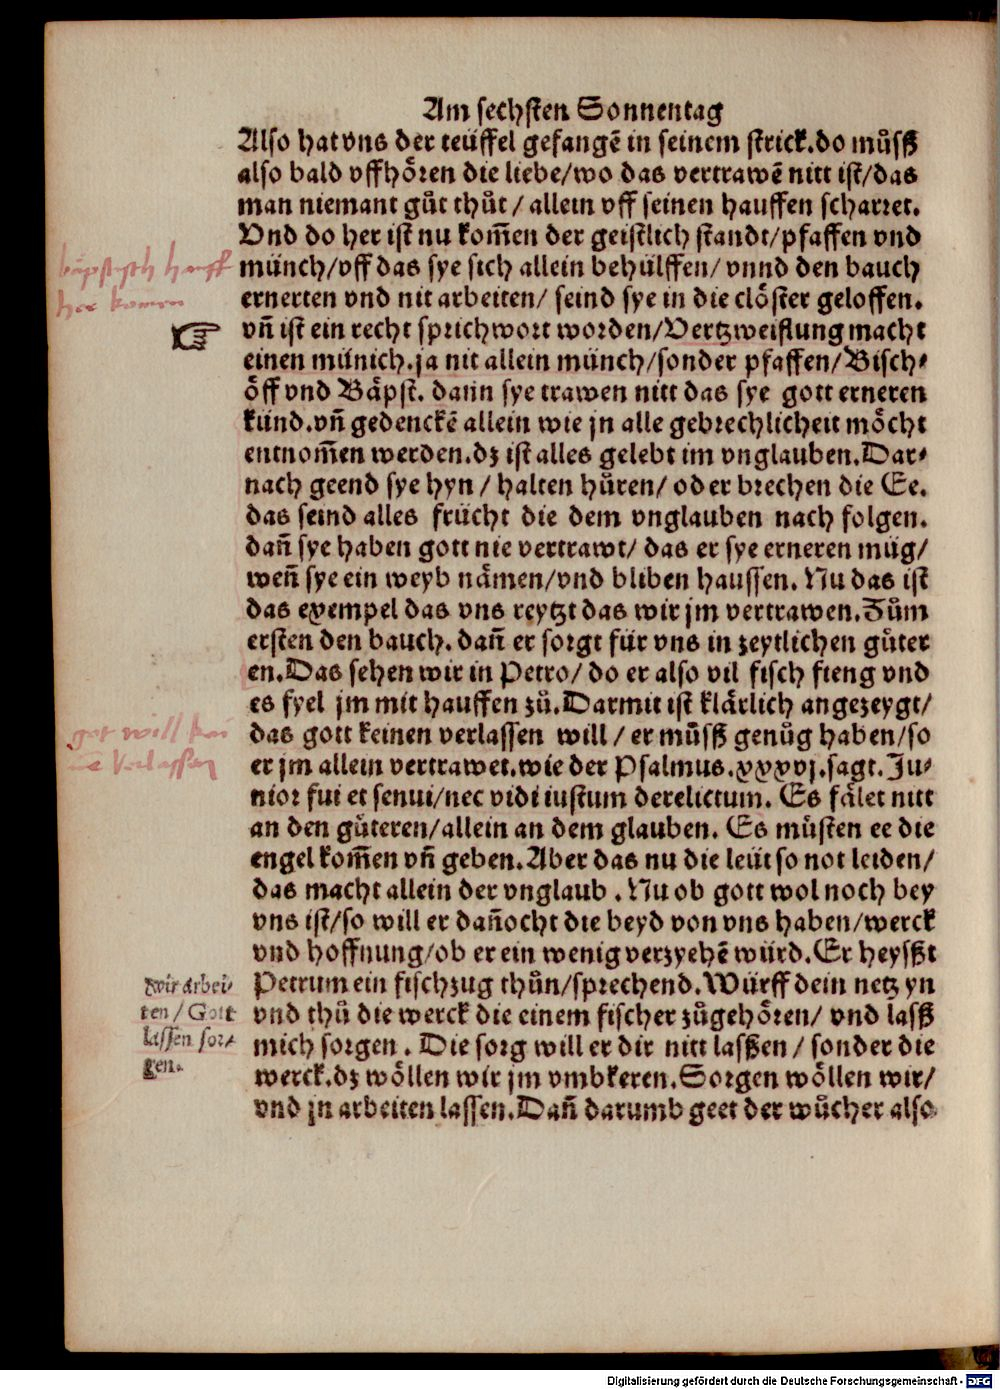 Am sechsten Sonnentag
Also hat vns der teüffel gefangē in seinem strick. do můsß
also bald vffhoͤren die liebe/wo das vertrawē nitt ist/das
man niemant gůt thůt / allein vff seinen hauffen scharret.
Vnd do her ist nu kom̄en der geistlich standt/pfaffen vnd
münch/vff das sye sich allein behülffen/ vnnd den bauch
ernerten vnd nit arbeiten/ seind sye in die cloͤster geloffen.
vn̄ ist ein recht sprichwort worden/Vertzweiflung macht
einen münich. ja nit allein münch/sonder pfaffen/Bisch⸗
oͤff vnd Baͤpst. dann sye trawen nitt das sye gott erneren
künd. vn̄ gedenckē allein wie jn alle gebrechlicheit moͤcht
entnom̄en werden. dz ist alles gelebt im vnglauben. Dar⸗
nach geend sye hyn / halten hůren/ oder brechen die Ee.
das seind alles frücht die dem vnglauben nach folgen.
dan̄ sye haben gott nie vertrawt/ das er sye erneren müg/
wen̄ sye ein weyb naͤmen/vnd bliben haussen. Nu das ist
das exempel das vns reytzt das wir jm vertrawen. Zům
ersten den bauch. dan̄ er sorgt für vns in zeytlichen gůter
en. Das sehen wir in Petro/ do er also vil fisch fieng vnd
es fyel jm mit hauffen zů. Darmit ist klaͤrlich angezeygt/
das gott keinen verlassen will / er můsß genůg haben/so
er jm allein vertrawet. wie der Psalmus. xxxvj. sagt. Ju⸗
nior fui et senui/nec vidi iustum derelictum. Es faͤlet nitt
an den gůteren/allein an dem glauben. Es müsten ee die
engel kom̄en vn̄ geben. Aber das nu die leüt so not leiden/
das macht allein der vnglaub . Nu ob gott wol noch bey
vns ist/so will er dan̄ocht die beyd von vns haben/werck
vnd hoffnung/ob er ein wenig verzyehē würd. Er heysßt
Petrum ein fischzug thůn/sprechend. Würff dein netz yn
vnd thů die werck die einem fischer zůgehoͤren/ vnd lasß
mich sorgen . Die sorg will er dir nitt laßsen / sonder die
werck. dz woͤllen wir jm vmbkeren. Sorgen woͤllen wir/
vnd jn arbeiten lassen. Dan̄ darumb geet der wůcher also
her komen
got will kei
ne verlassen
wir arbei⸗
ten / Gott
lassen sor⸗
gen.
Digitalisierung gefördert durch die Deutsche Forschungsgemeinschaft - DFG